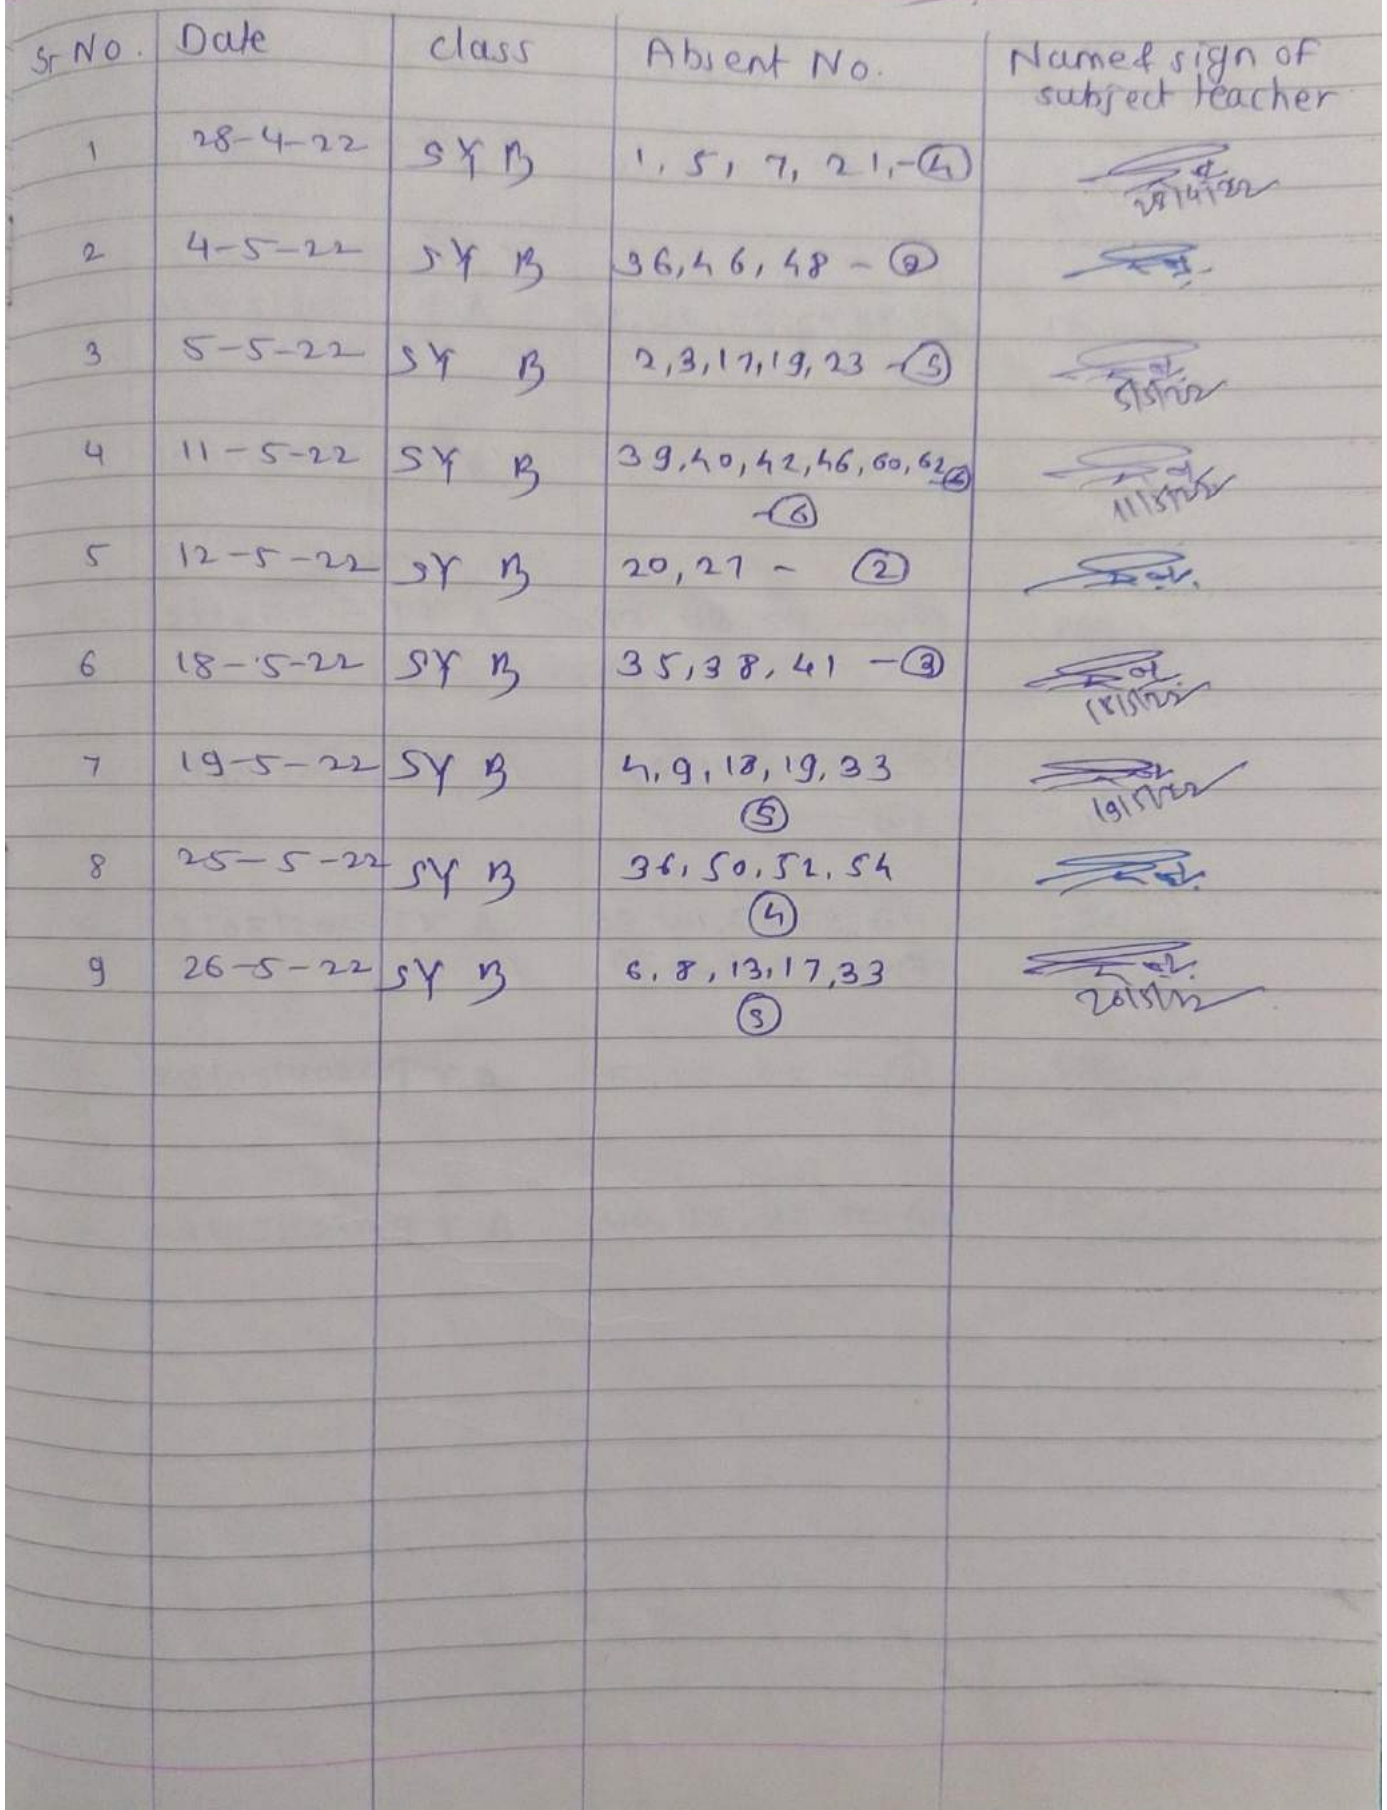 Sr No. Date class Absent No. Name & sign of
subject teacher
1 28-4-22 SY B 1, 5, 7, 21, - 4
28/4/22
2 4-5-22 SY B 36, 46, 48 - 3
3 5-5-22 SY B 2, 3, 17, 19, 23 - 5
5/5/22
4 11-5-22 SY B 39, 40, 42, 46, 60, 62
- 6
11/5/22
5 12-5-22 SY B 20, 27 - 2
6 18-5-22 SY B 35, 38, 41 - 3
18/5/22
7 19-5-22 SY B 4, 9, 18, 19, 33
5
19/5/22
8 25-5-22 SY B 36, 50, 52, 54
4
9 26-5-22 SY B 6, 8, 13, 17, 33
5